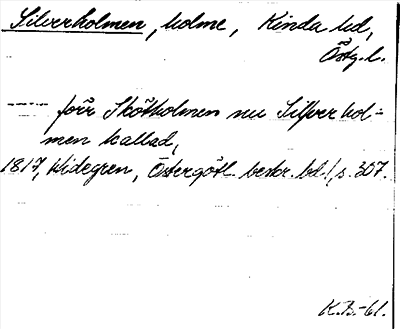 Silverholmen, holme, Kinda hd,
Östg. l.
----- förr Skötholmen nu Silfverhol-
men kallad,
1817, Widegren, Östergötl. beskr. bd 1, s. 307.
K.B.-61.